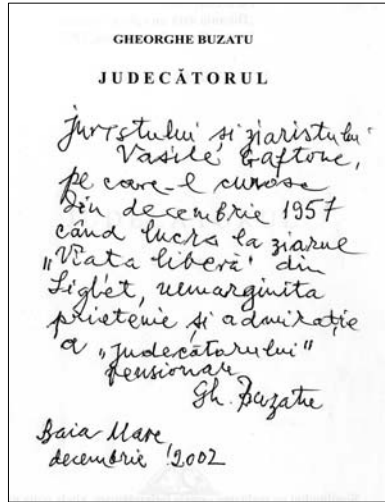 GHEORGHE BUZATU
JUDECĂTORUL
juristului și ziaristului
Vasile Gaftone,
pe care-l cunosc
din decembrie 1957
când lucra la ziarul
„Viata liberă" din
Sighet, nemarginita
prietenie și admirație
a „judecătorului"
pensionar
Gh. Buzatu
Baia Mare
decembrie 2002